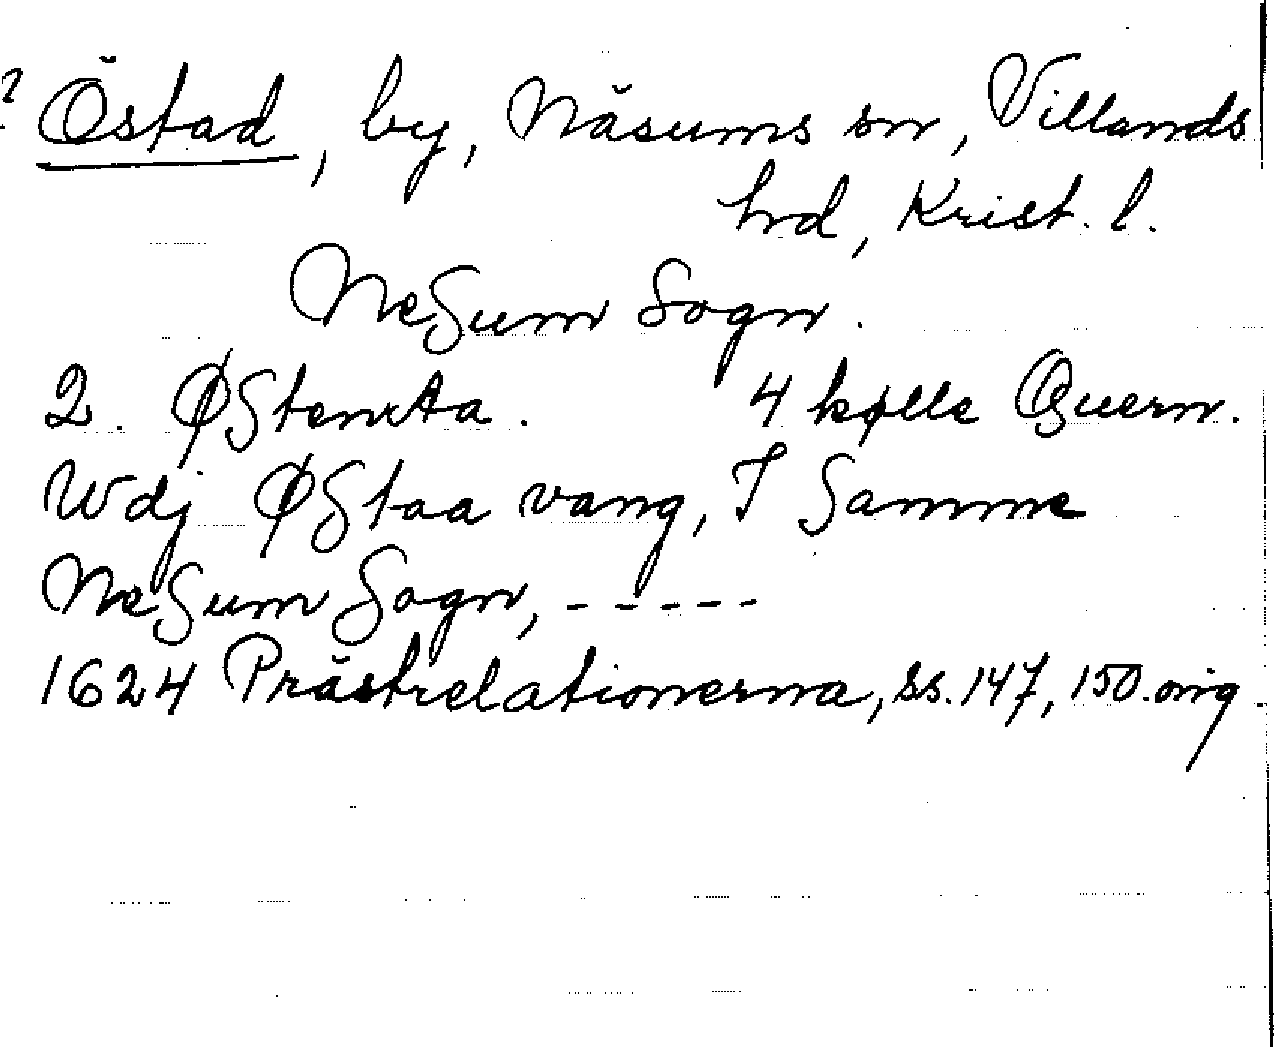 ? Östad, by, Näsums sn, Villands
hrd, Krist. l.
Nesum Sogn.
2. Østenta. 4 kølle Quern.
Wdj Østaa vang, I Samme
Nesum Sogn, - - - - -
1624 Prästrelationerna, ss. 147, 150. orig